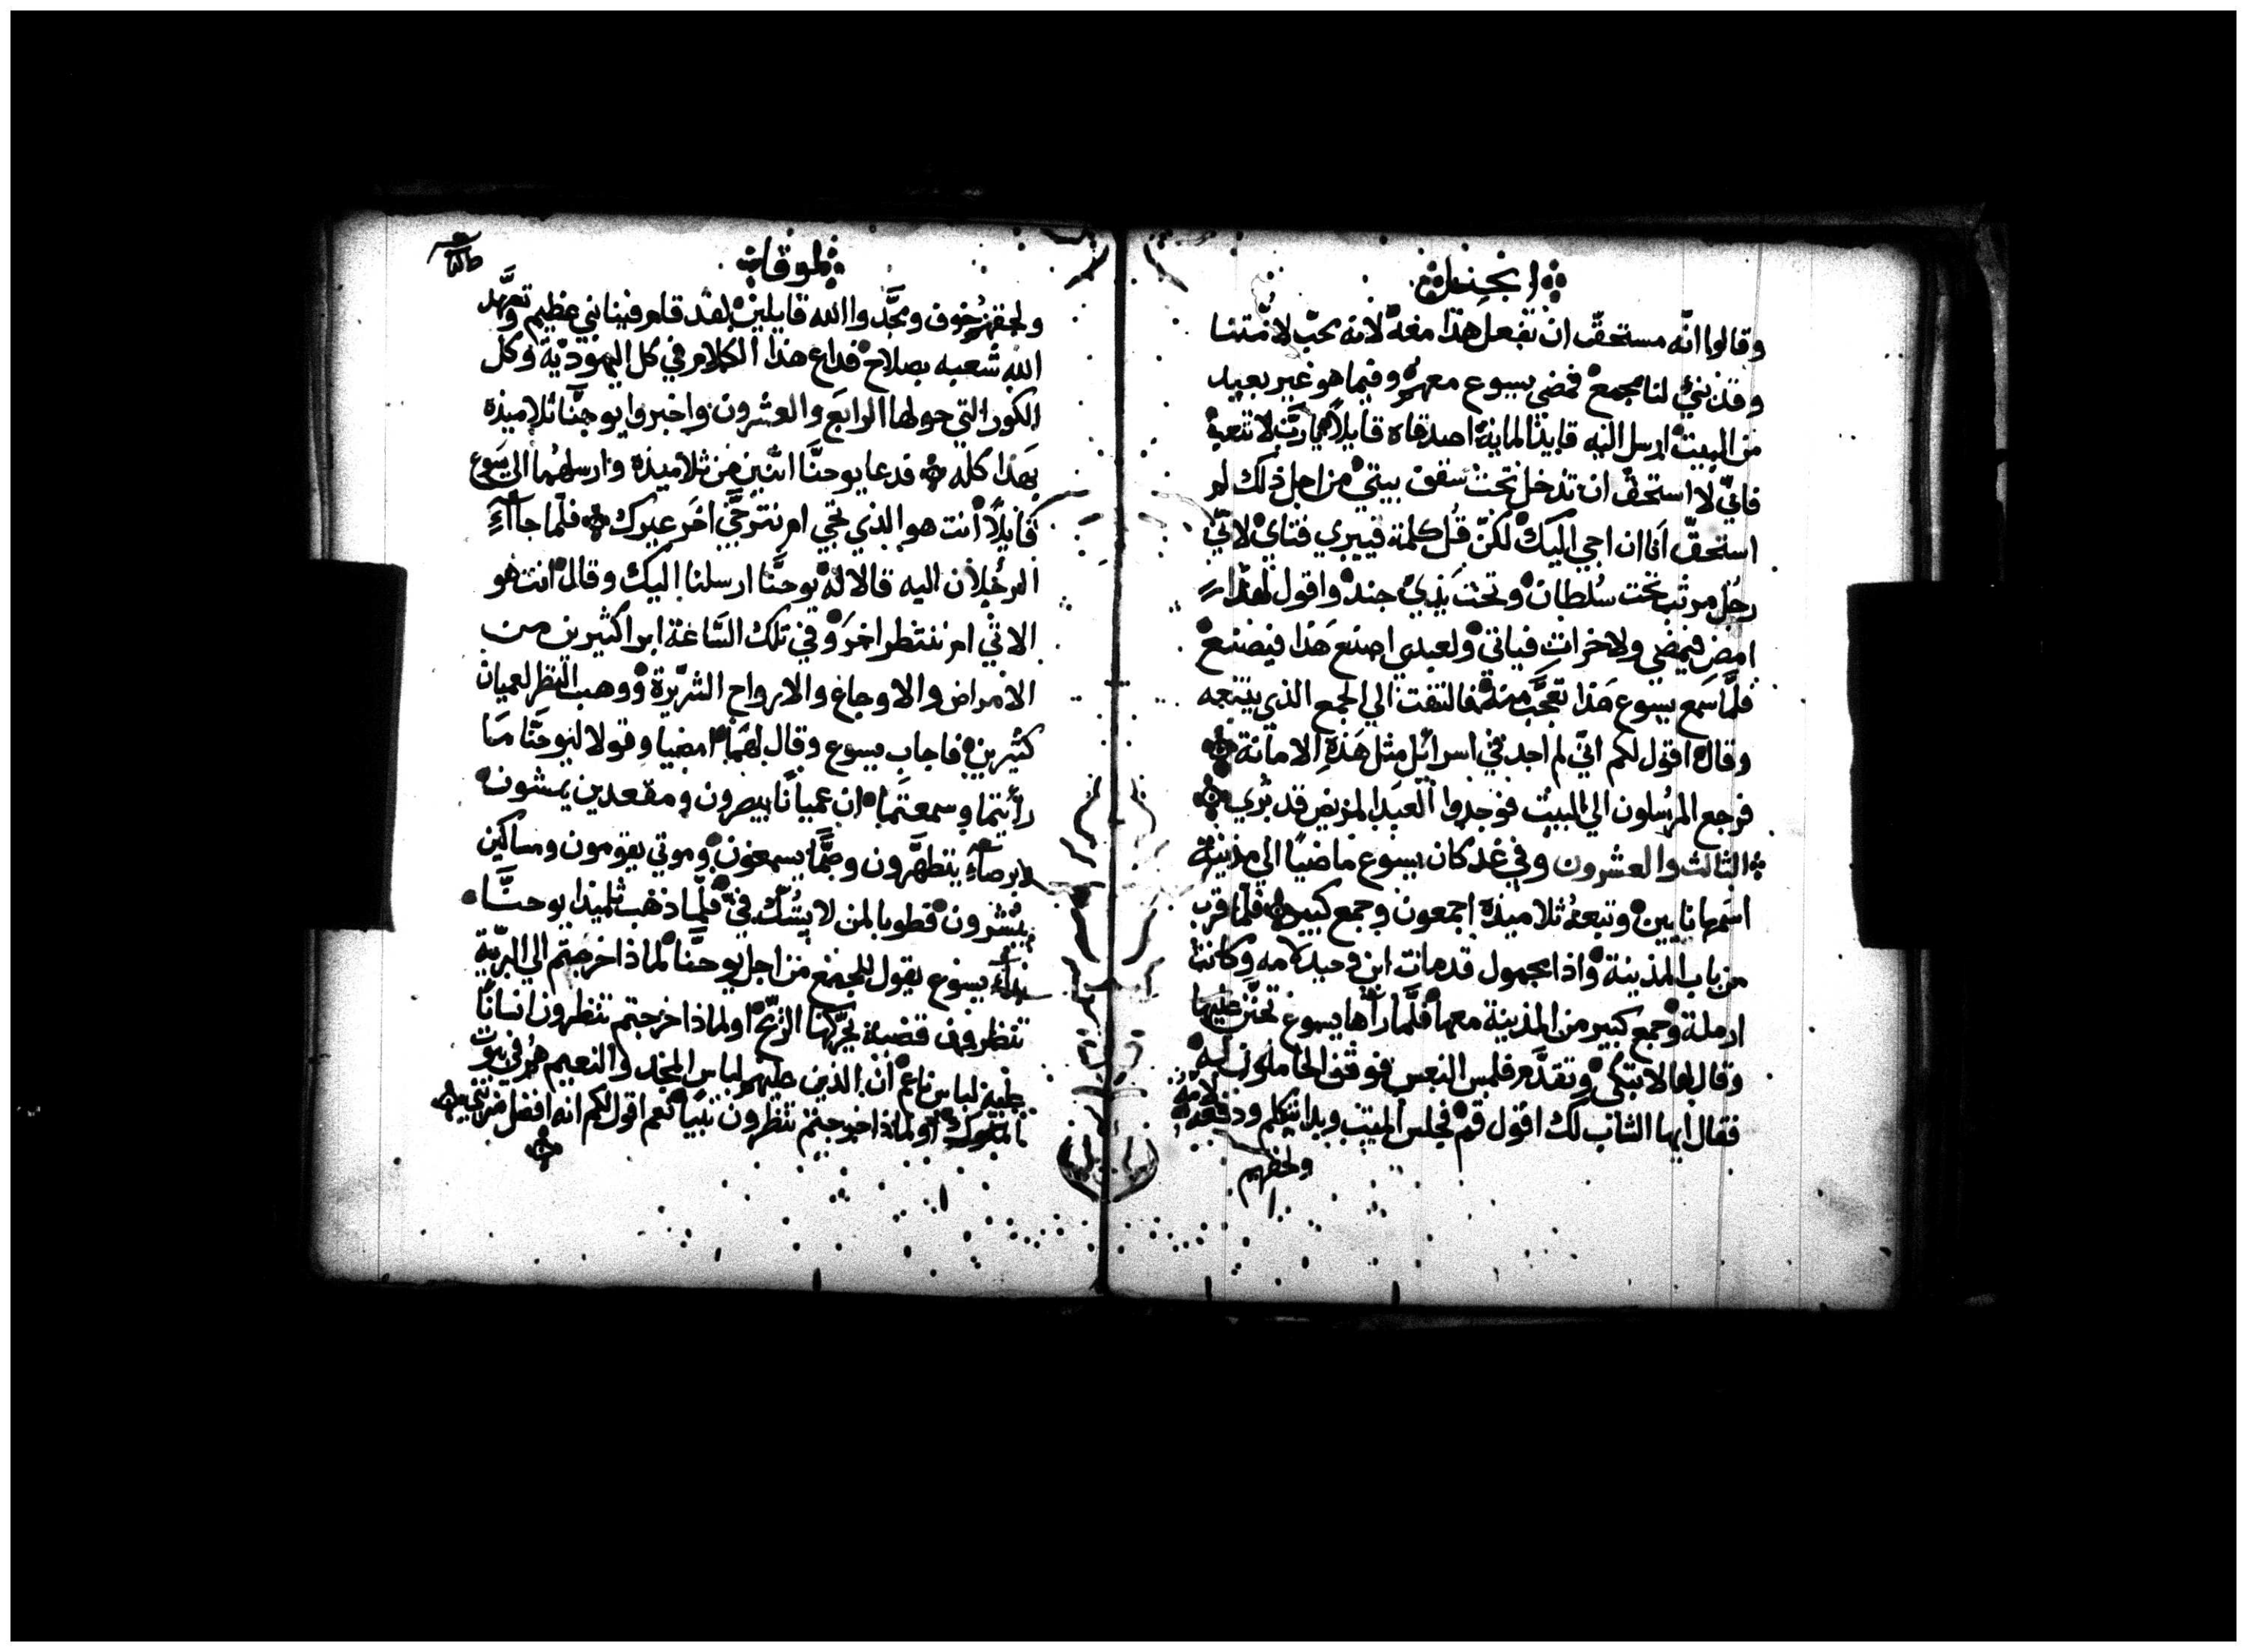 انجيل
وقالوا انّه مستحقّ ان تفعل هذا معه لانه يحبّ لامّتنا
وقد بني لنا مجمع فمضي يسوع معهم وفيما هو غير بعيد
من البيت ارسل اليه قايد الماية اصدقاه قايلاً يا ربّ لا تتعب
فانّي لا استحقّ ان تدخل تحت سقف بيتي من اجل ذلك لم
استحقّ انا ان اجي اليك لكن قُل كلمة فيبري فتاي لانّي
رجل مرتّب تحت سُلطان وتحت يدي جند واقول لهذا
امضِ فيمضي ولاخر اتِ فياتي ولعبدي اصنع هذا فيصنع
فلمّا سمع يسوع هذا تعجّب منه فالتفت الي الجمع الذي يتبعه
وقال اقول لكم انّي لم اجد في اسرائيل مثل هذه الامانة
فرجع المرسلون الي البيت فوجدوا العبد المريض قد بري
الثالث والعشرون وفي غد كان يسوع ماضيًا الي مدينة
اسمها نايين وتبعهُ تلاميذه اجمعون وجمع كبير فلما قرب
من باب المدينة واذا محمول قد مات ابن وحيد لامه وكانت
ارملة وجمع كبير من المدينة معها فلمّا رآها يسوع تحنّن عليها
وقال لها لا تبكي وتقدّم فلمس النعس فوقف الحاملون له
فقال ايها الشاب لك اقول قم فجلس الميت وبدا يتكلم ودفعه لامه
ولحقهم
لوقا
ولحقهم خوف ومجّدوا الله قايلين لقد قام فينا نبي عظيم وتعهّد
الله شعبه بصلاح فذاع هذا الكلام في كل اليهوديّة وكل
الكور التي حولها الرابع والعشرون واخبروا يوحنّا تلاميذه
بهذا كله فدعا يوحنّا اثنين من تلاميذه وارسلهما الي يسوع
قايلاً أنت هو الذي تجي ام نترجّي اخر غيرك فلمّا جاآء
الرجُلان اليه قالا له يوحنّا ارسلنا اليك وقال انت هو
الاتي ام ننتظر اخر وفي تلك السّاعة ابرا كثيرين من
الامراض والاوجاع والارواح الشرّيرة ووهب النظر لعميان
كثيرين فاجاب يسوع وقال لهما امضيا وقولا ليوحنّا ما
رأيتما وسمعتما ان عميانًا يبصرون ومقعدين يمشون
وبرصآء يتطهّرون وصمًّا يسمعون وموتي يقومون ومساكين
يبشرون فطوبا لمن لا يشكّ فيّ فلمّا ذهب تلميذا يوحنّا
بدأ يسوع يقول للجمع من اجل يوحنّا لماذا خرجتم الي البريّة
تنظرون قصبة تحرّكها الريح او لماذا خرجتم تنظرون انسانًا
عليه لباس ناعم ان الذين عليهم لباس المجد والنعيم هم في بيوت
الملوك او لماذا خرجتم تنظرون نبيّا نعم اقول لكم انه افضل من نبي